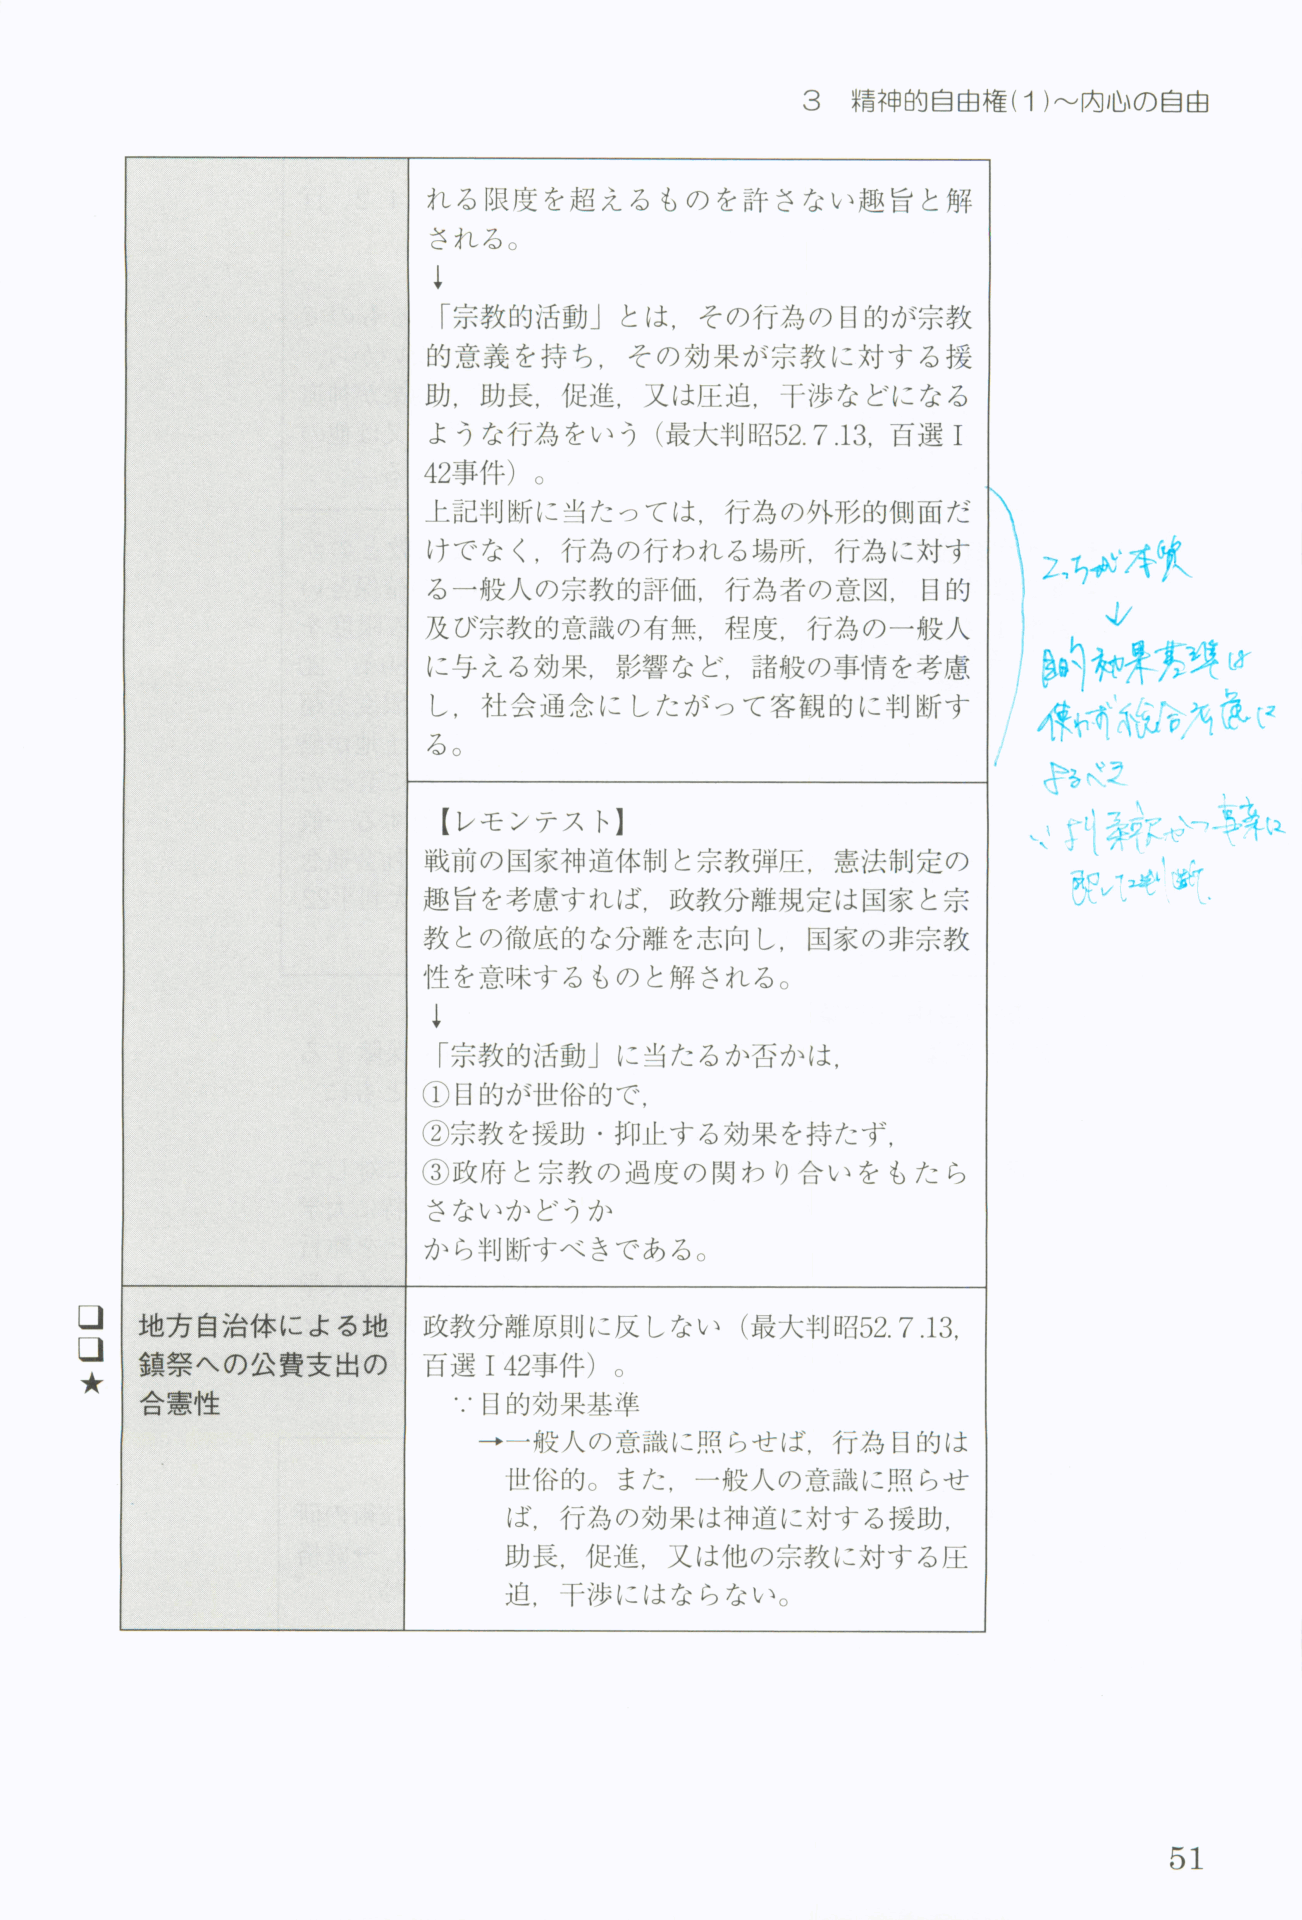 3　精神的自由権(1)～内心の自由
れる限度を超えるものを許さない趣旨と解
される。
↓
「宗教的活動」とは，その行為の目的が宗教
的意義を持ち，その効果が宗教に対する援
助，助長，促進，又は圧迫，干渉などになる
ような行為をいう（最大判昭52.7.13，百選Ⅰ
42事件）。
上記判断に当たっては，行為の外形的側面だ
けでなく，行為の行われる場所，行為に対す
る一般人の宗教的評価，行為者の意図，目的
及び宗教的意識の有無，程度，行為の一般人
に与える効果，影響など，諸般の事情を考慮
し，社会通念にしたがって客観的に判断す
る。
こっちが本質
↓
目的効果基準は
使わず総合考慮に
よるべき
∵より柔軟かつ事案に
即して判断.
【レモンテスト】
戦前の国家神道体制と宗教弾圧，憲法制定の
趣旨を考慮すれば，政教分離規定は国家と宗
教との徹底的な分離を志向し，国家の非宗教
性を意味するものと解される。
↓
「宗教的活動」に当たるか否かは，
①目的が世俗的で，
②宗教を援助・抑止する効果を持たず，
③政府と宗教の過度の関わり合いをもたら
さないかどうか
から判断すべきである。
❏
❏
★
地方自治体による地
鎮祭への公費支出の
合憲性
政教分離原則に反しない（最大判昭52.7.13，
百選Ⅰ42事件）。
∵目的効果基準
→一般人の意識に照らせば，行為目的は
世俗的。また，一般人の意識に照らせ
ば，行為の効果は神道に対する援助，
助長，促進，又は他の宗教に対する圧
迫，干渉にはならない。
51